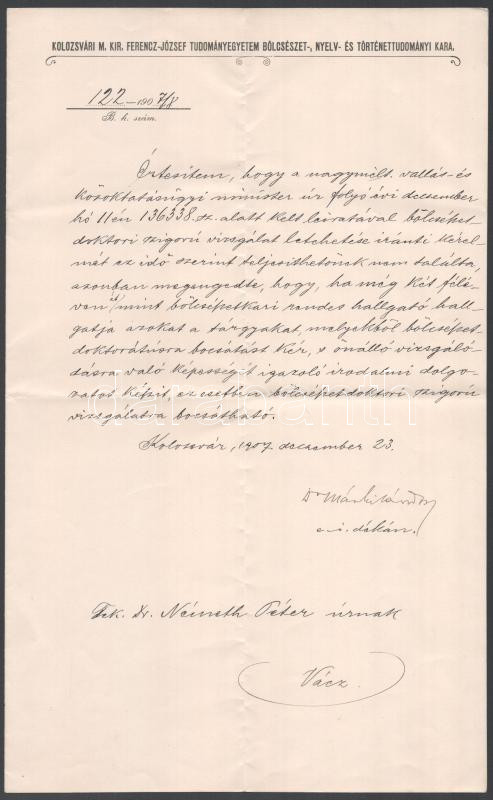 KOLOZSVÁRI M. KIR. FERENCZ-JÓZSEF TUDOMÁNYEGYETEM BÖLCSÉSZET-, NYELV- ÉS TÖRTÉNETTUDOMÁNYI KARA.
122 – 1907/8
B. k. szám.
Értesitem, hogy a nagymélt. vallás- és
közoktatásügyi minister úr folyó évi december
hó 11én 136338. sz. alatt kelt leiratával bölcsészet-
doktori szigorú vizsgálat letehetése iránti kérel-
mét ez idő szerint teljesithetőnek nem találta,
azonban megengedte, hogy, ha még két félé-
ven át, mint bölcsészetkari rendes hallgató hall-
gatja azokat a tárgyakat, melyekből bölcsészet-
doktorátusra bocsátást kér, s önálló vizsgáló-
dásra való képességét igazoló irodalmi dolgo-
zatot készit, ez esetben bölcsészetdoktori szigorú
vizsgálatra bocsátható.
Kolozsvár, 1907. december 23.
Dr Márki Sándor
e. i. dékán.
Tek. Dr. Németh Péter úrnak
Vácz.
darabanth